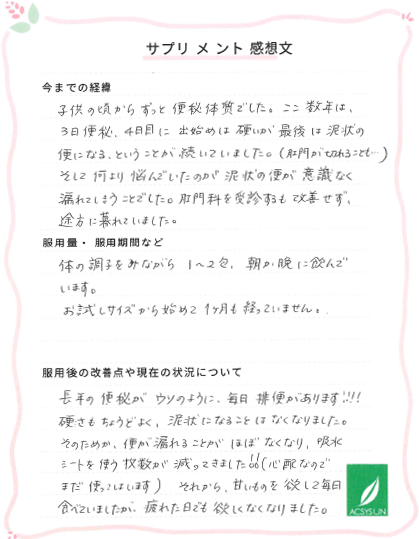 サプリメント感想文
今までの経緯
子供の頃からずっと便秘体質でした。ここ数年は、
3日便秘、4日目に出始めは硬いが最後は泥状の
便になる、ということが続いていました。(肛門が切れることも…)
そして何より悩んでいたのが泥状の便が意識なく
漏れてしまうことでした。肛門科を受診するも改善せず、
途方に暮れていました。
服用量・服用期間など
体の調子をみながら 1〜2包、朝か晩に飲んで
います。
お試しサイズから始めて1ヶ月も経っていません。
服用後の改善点や現在の状況について
長年の便秘がウソのように、毎日排便があります!!!
硬さもちょうどよく、泥状になることはなくなりました。
そのためか、便が漏れることがほぼなくなり、吸水
シートを使う枚数が減ってきました!!(心配なので
まだ使ってはいます) それから、甘いものを欲して毎日
食べていましたが、疲れた日でも欲しくなくなりました。
ACSYSUN